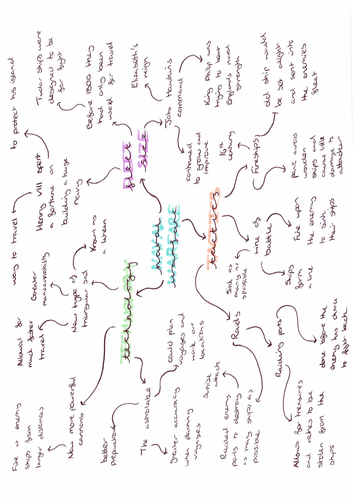 naval
warfare
fleet
size
Henry VIII spent
a fortune on
building a huge
navy
to protect his island
Trade ships were
designed to be
for fight
Before 1500 they
had only been
used for travel
Elizabeth's
reign
John Hawkins
command
King Philip was
trying to beat
England's naval
strength
continued
to grow and
improve
tactics
16th
century
Fireships
old ship would
be set alight
and sent into
the enemies
fleet
panic across
wooden
ships and
cause little
damage to
attackers
Line of
battle
Fire upon
the enemy
to sink
their ships
Ships
form
a line
Raids
Sink
many as
possible
Surprise attack
Raided enemy
ports to destroy
as many ships as
possible
Raiding ports
done before the
enemy has chance
to fight back
Allows for treasures
and riches to be
stolen from the
ships
technology
New type of
triangular sail
known as
a lateen
Greater
manoeuvrability
way to travel
Allowed for
much faster
travel
New more powerful
cannons
Fire at enemy
ships from
larger distances
The astrolabe
better
preparation
greater accuracy
when planning
voyages
could plan
voyages and
mark out
locations